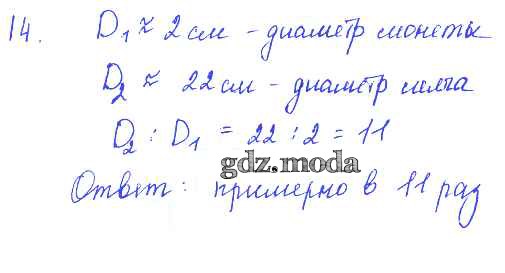 14. D₁ ≈ 2 см - диаметр монеты
D₂ ≈ 22 см - диаметр мяча
D₂ : D₁ = 22 : 2 = 11
gdz.moda
Ответ: примерно в 11 раз